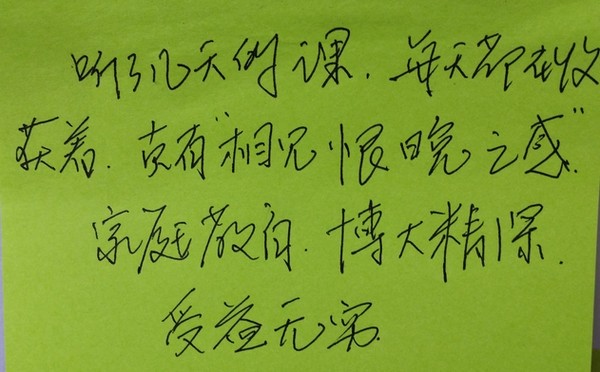 听了几天的课,每天都在收
获着.真有"相见恨晚之感"
家庭教育.博大精深.
受益无穷